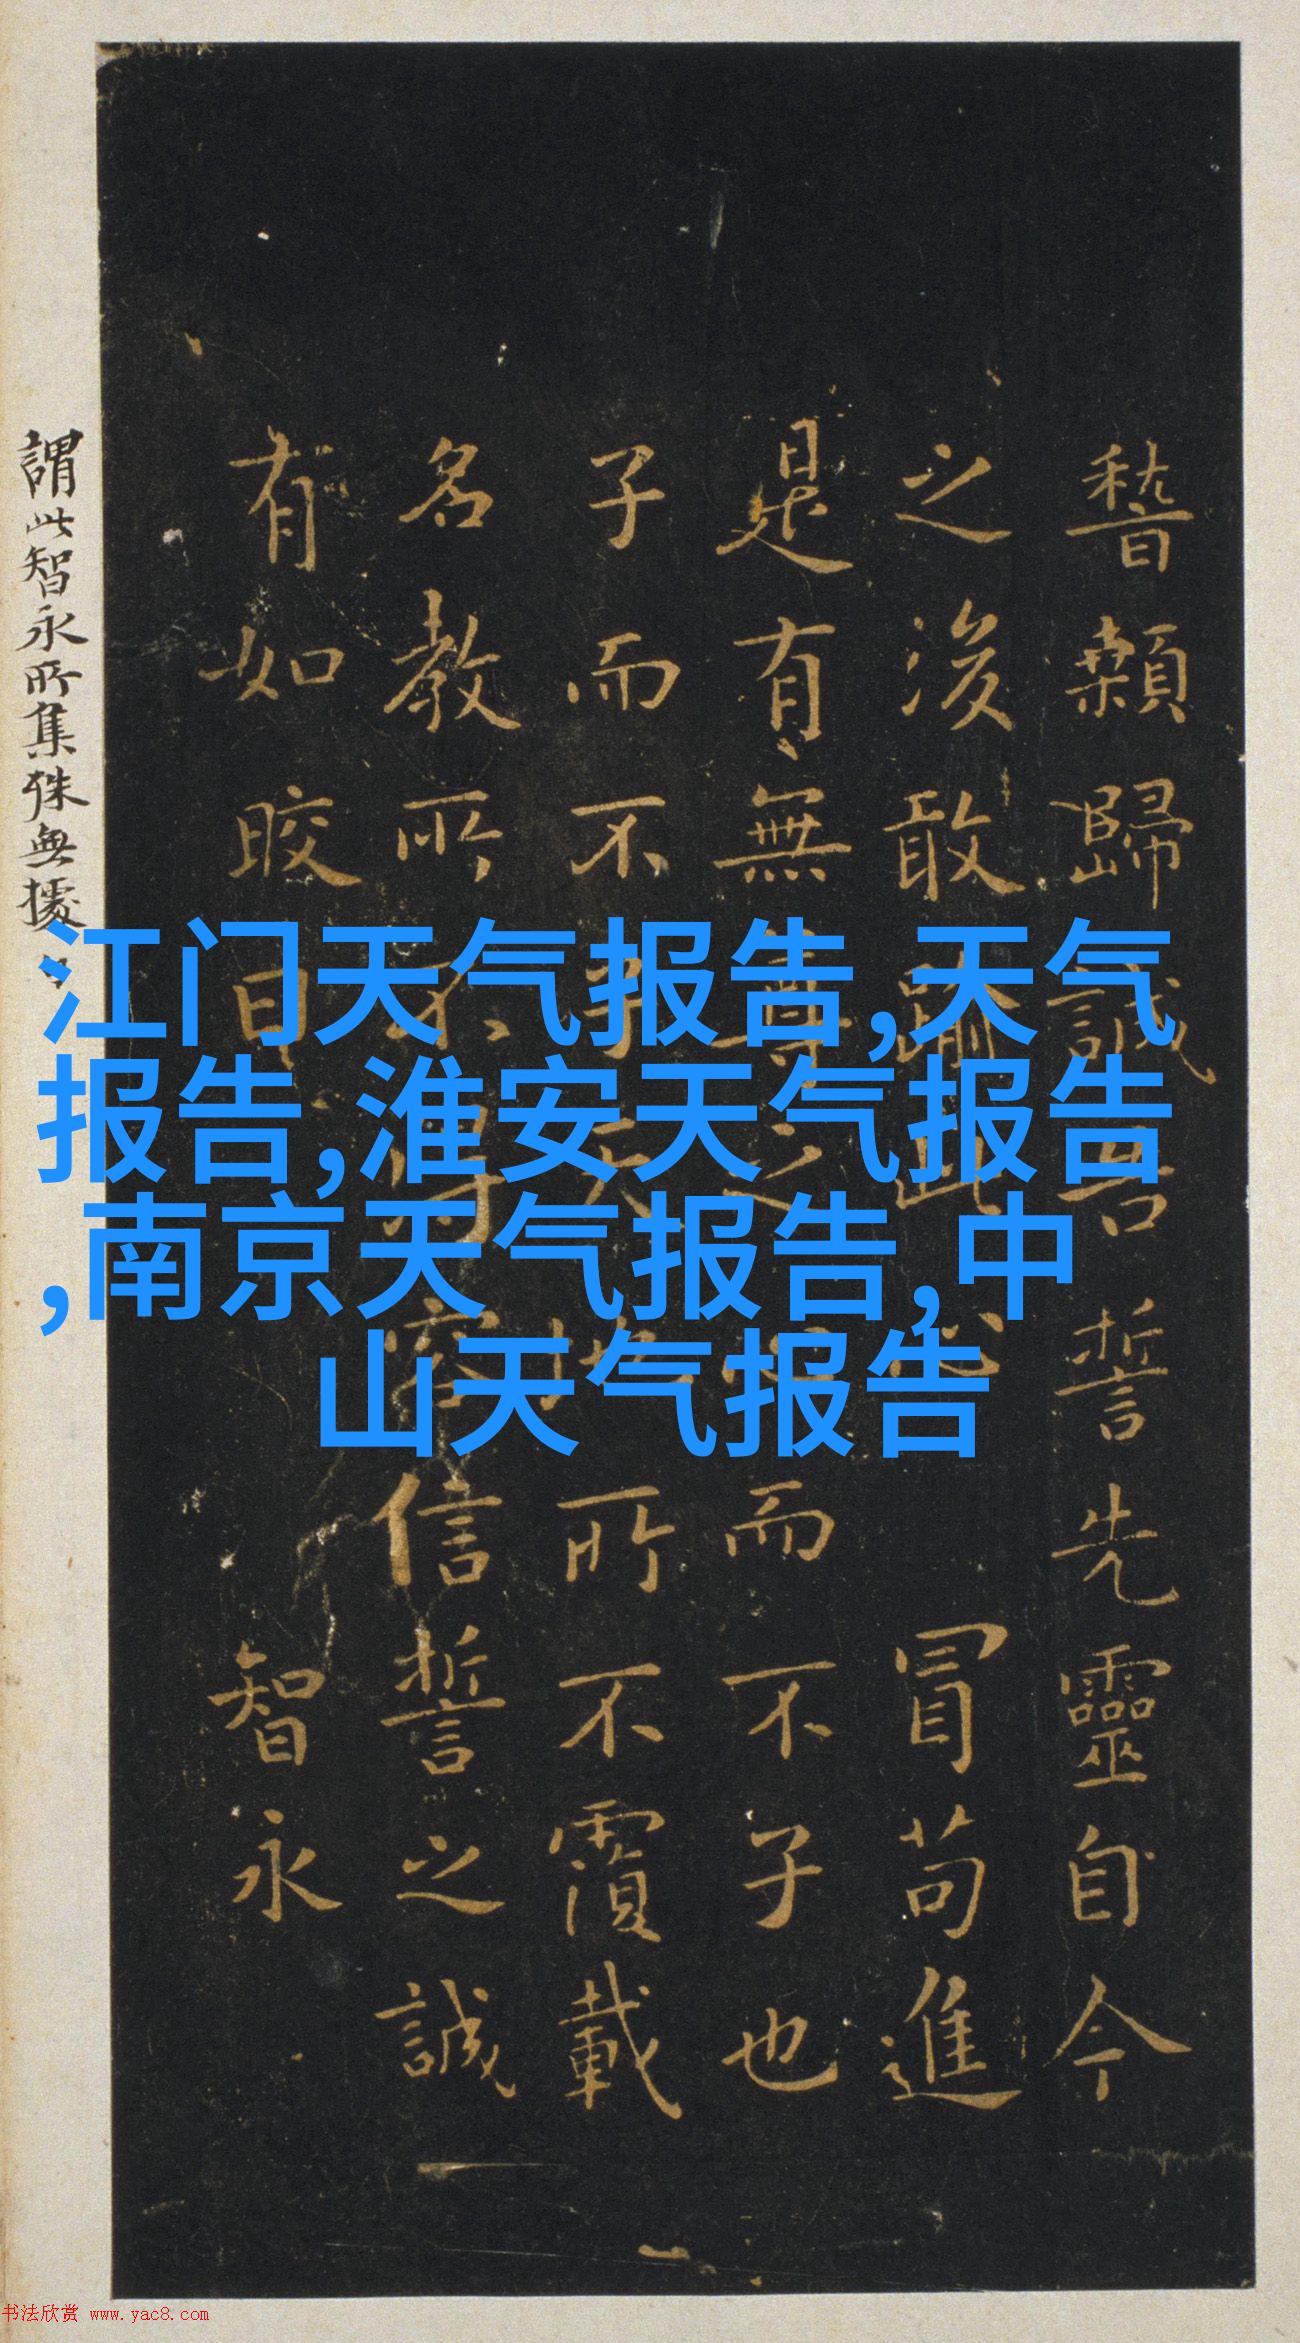 稽顙歸誠告誓先靈自今
之後敢踰此心 冒苟進
是有無尊之心而不子也
子而不子天地所不覆載
名教所不得容信誓之誠
有如皎日 智永
謂此智永所集殊無據
江门天气报告,天气
报告,淮安天气报告
,南京天气报告,中
山天气报告
书法欣赏 www.yac8.com